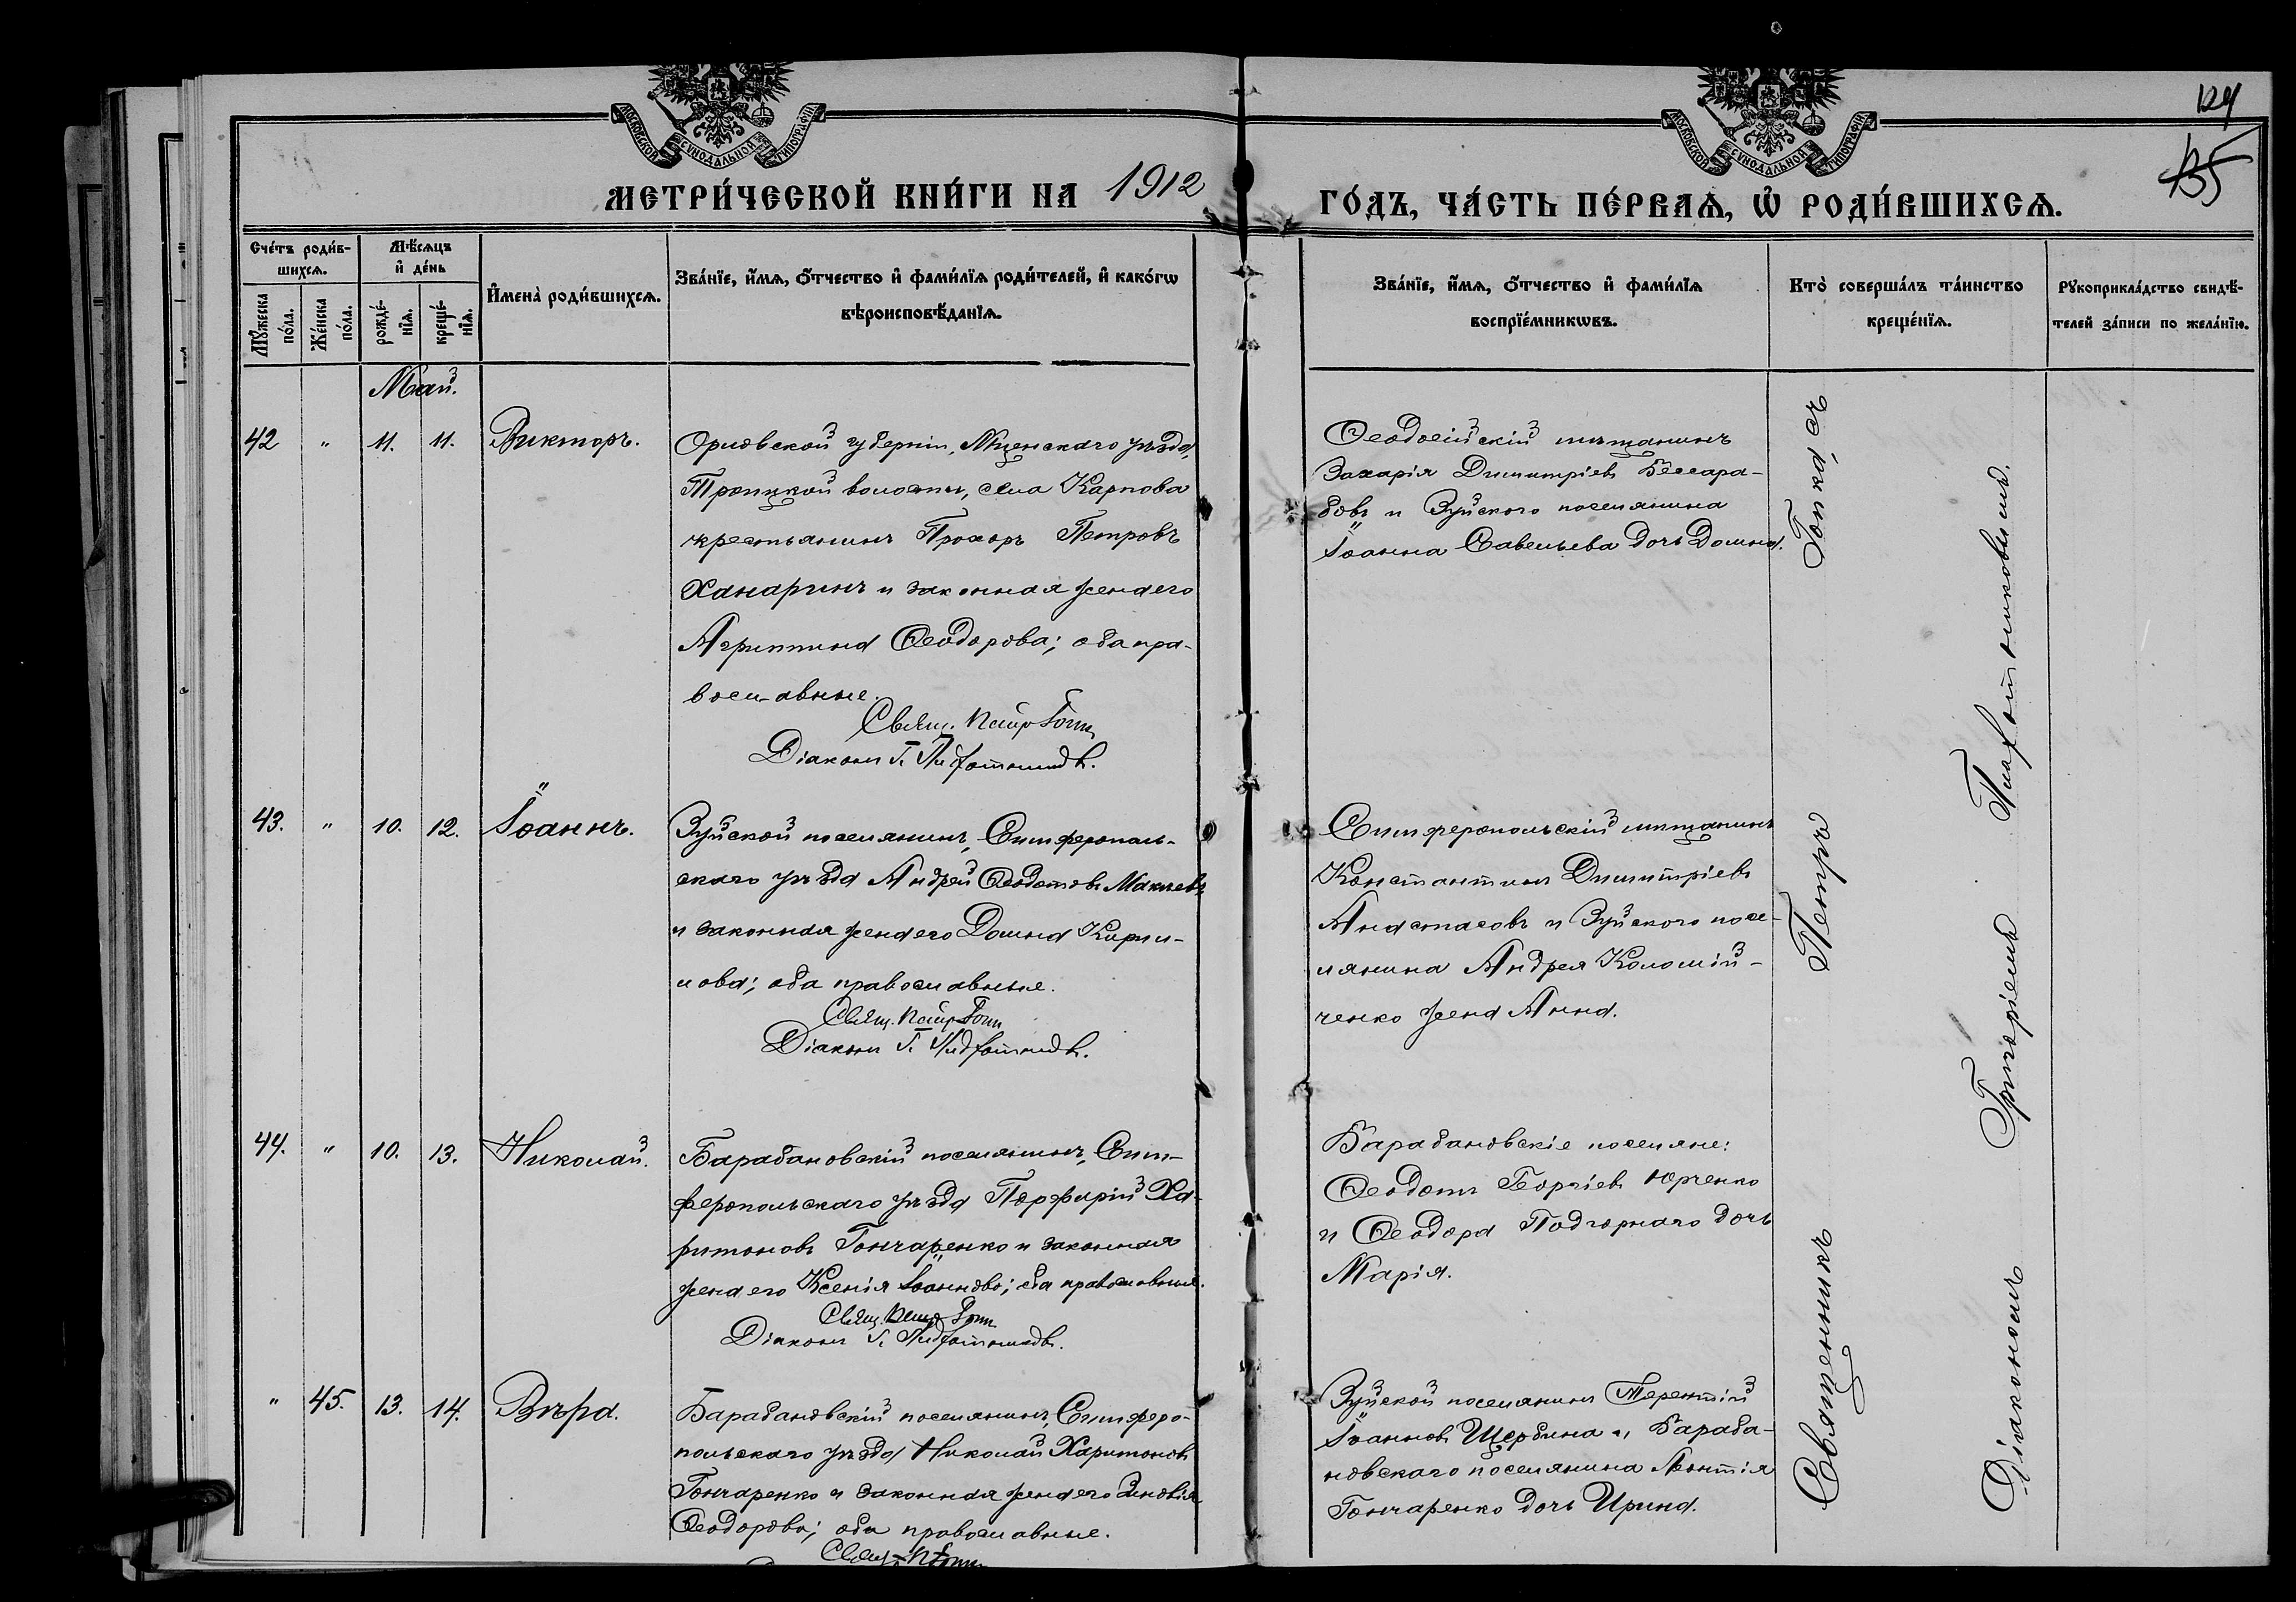 129
135
МОСКОВСКОЙ СѴНОДАЛЬНОЙ ТИПОГРАФІИ
МОСКОВСКОЙ СѴНОДАЛЬНОЙ ТИПОГРАФІИ
МЕТРИ́ЧЕСКОЙ КНИ́ГИ НА 1912
ГО́ДЪ, ЧА́СТЬ ПЕ́РВАѦ, Ѡ҆ РОДИ́ВШИХСѦ.
Сче́тъ роди́в-
шихсѧ.
Мѣ́сѧцъ
и҆ де́нь
Мꙋ́жеска
по́ла.
Же́нска
по́ла.
рожде́-
нїѧ.
креще́-
нїѧ.
И҆мена̀ роди́вшихсѧ.
Зва́нїе, и҆́мѧ, ѻ҆́тчество и҆ фами́лїѧ роди́телей, и҆ како́гѡ
вѣроисповѣ́данїѧ.
Зва́нїе, и҆́мѧ, ѻ҆́тчество и҆ фами́лїѧ
воспрїе́мникѡвъ.
Кто̀ соверша́лъ та́инство
креще́нїѧ.
Рꙋкоприкла́дство свидѣ́-
телей за́писи по жела́нїю.
Май.
42 " 11. 11. Викторъ.
Орловской губерніи, Мценскаго уѣзда,
Троицкой волости, села Карпова
крестьянинъ Прохоръ Петровъ
Ханаринъ и законная жена его
Агриппина Ѳеодорова; оба пра-
вославные.
Свящ. Петр Гопк
Діаконъ Г. Плахотниковъ.
Ѳеодосійскій мѣщанинъ
Захарія Димитріевъ Бессара-
бовъ и Зуйского поселянина
Іоанна Савельева дочь Домна.
43. " 10. 12. Іоаннъ.
Зуйской поселянинъ, Симферополь-
скаго уѣзда Андрей Ѳеодотовъ
и законная жена его Домна Кирил-
лова; оба православные.
Свящ. Петр Гопк
Діаконъ Г. Плахотниковъ.
Симферопольскій мѣщанинъ
Константинъ Димитріевъ
Анастасовъ и Зуйского посе-
лянина Андрея Коломій-
ченко жена Анна.
44. " 10. 13. Николай.
Барабановскій поселянинъ, Сим-
феропольскаго уѣзда Порфирій Ха-
ритоновъ Гончаренко и законная
жена его Ксенія Іоаннова; оба православные.
Свящ. Петр Гопк
Діаконъ Г. Плахотниковъ.
Барабановскіе поселяне:
Ѳеодотъ Георгіевъ Юрченко
и Ѳеодора Подгорнаго дочь
Марія.
" 45. 13. 14. Вѣра.
Барабановскій поселянинъ, Симферо-
польскаго уѣзда Николай Харитоновъ
Гончаренко и законная жена его Зиновія
Ѳеодорова; оба православные.
Свящ. П. Гопк
Зуйской поселянинъ Терентій
Іоанновъ Щербина и Бараба-
новскаго поселянина Леонтія
Гончаренко дочь Ирина.
Священникъ Петръ
Діакономъ Григоріемъ Плахотниковымъ.